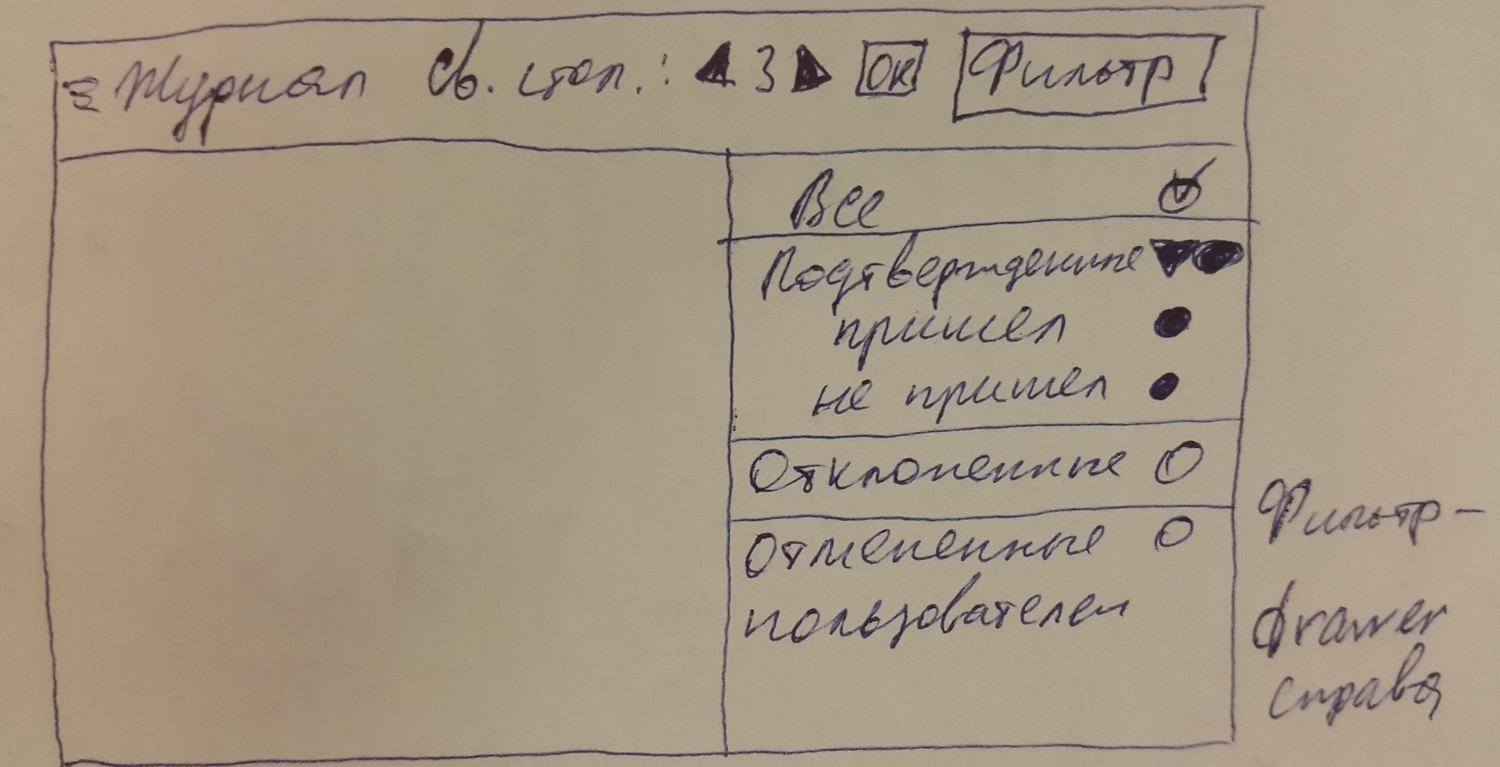 Журнал Св. стол.: 3 ОК Фильтр
Все
Подтвержденные
пришел
не пришел
Отклоненные
Отмененные
пользователем
Фильтр -
drawer
справа